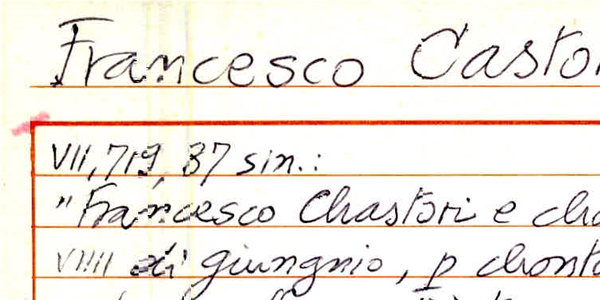 Francesco Casto
VII, 719, 37 sin.:
"Francesco Chastori e cha
VIIII di giungnio, p chonto